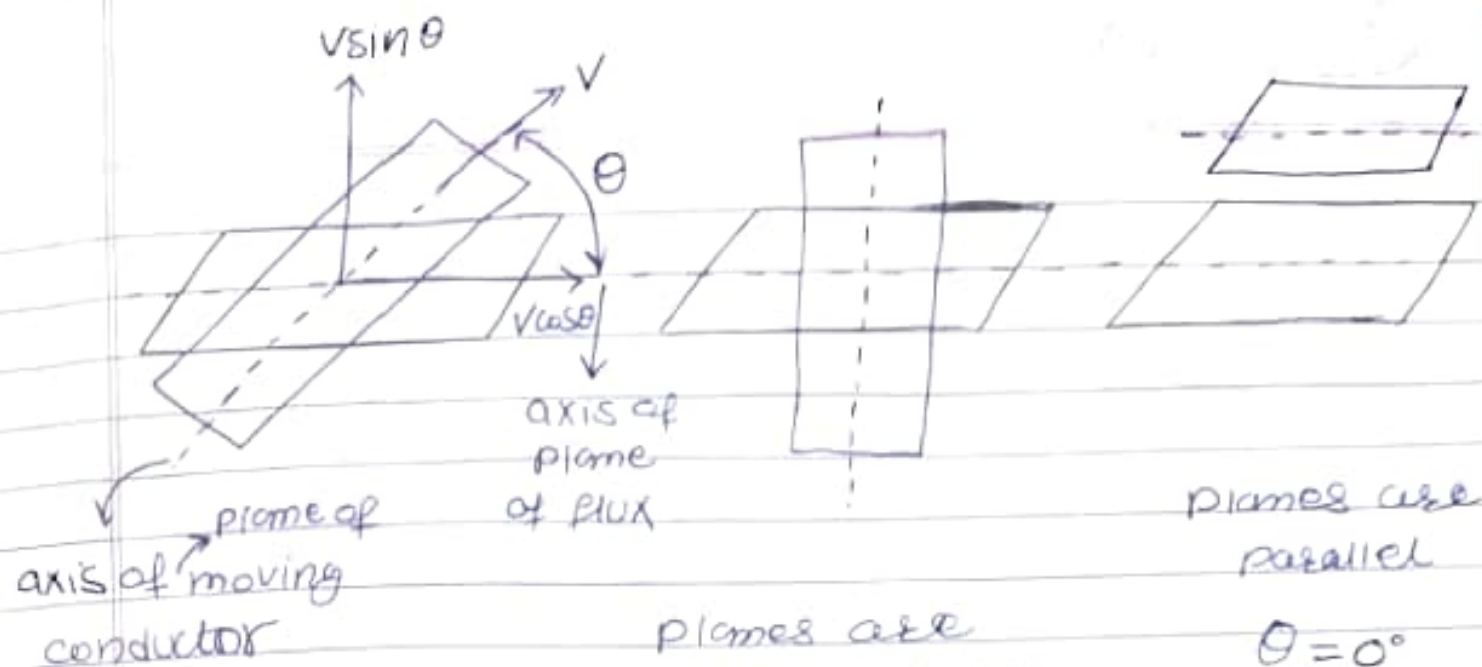 vsinθ
V
θ
vcosθ
axis of
plane
of flux
plane of
axis of moving
conductor
planes are
planes are
parallel
θ = 0°